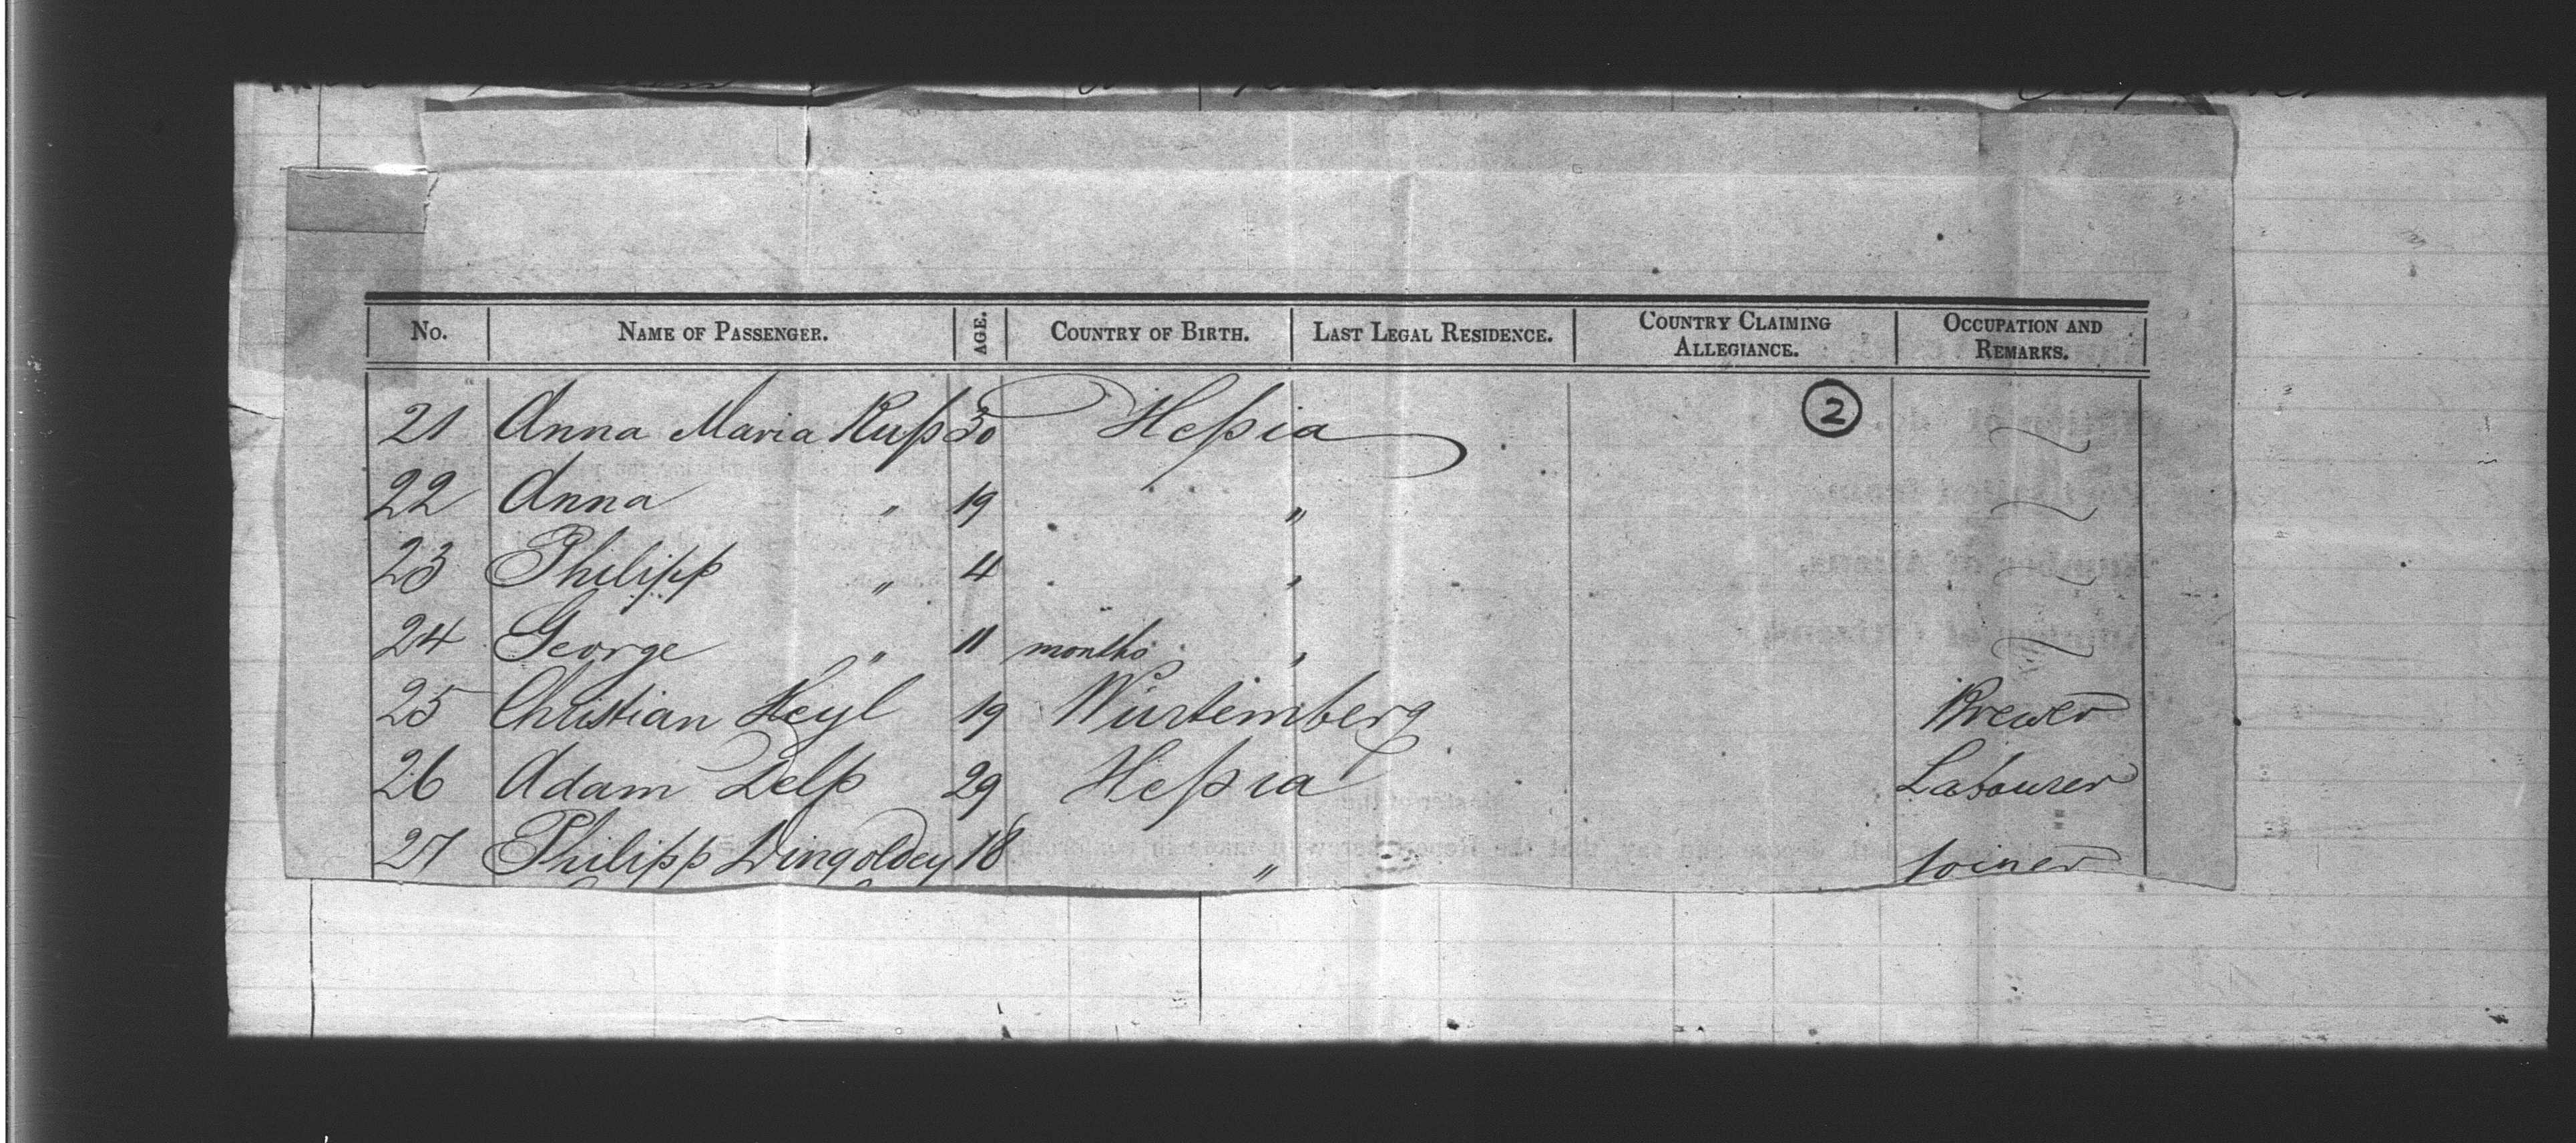 No. NAME OF PASSENGER. AGE. COUNTRY OF BIRTH. LAST LEGAL RESIDENCE. COUNTRY CLAIMING ALLEGIANCE. OCCUPATION AND REMARKS.
2
21 Anna Maria Ruß 30 Heßia
22 Anna " 19 "
23 Philipp " 4 "
24 George " 11 months "
25 Christian Heyl 19 Würtemberg Brewer
26 Adam Delp 29 Heßia Labourer
27 Philipp Dingoldey 18 " Joiner